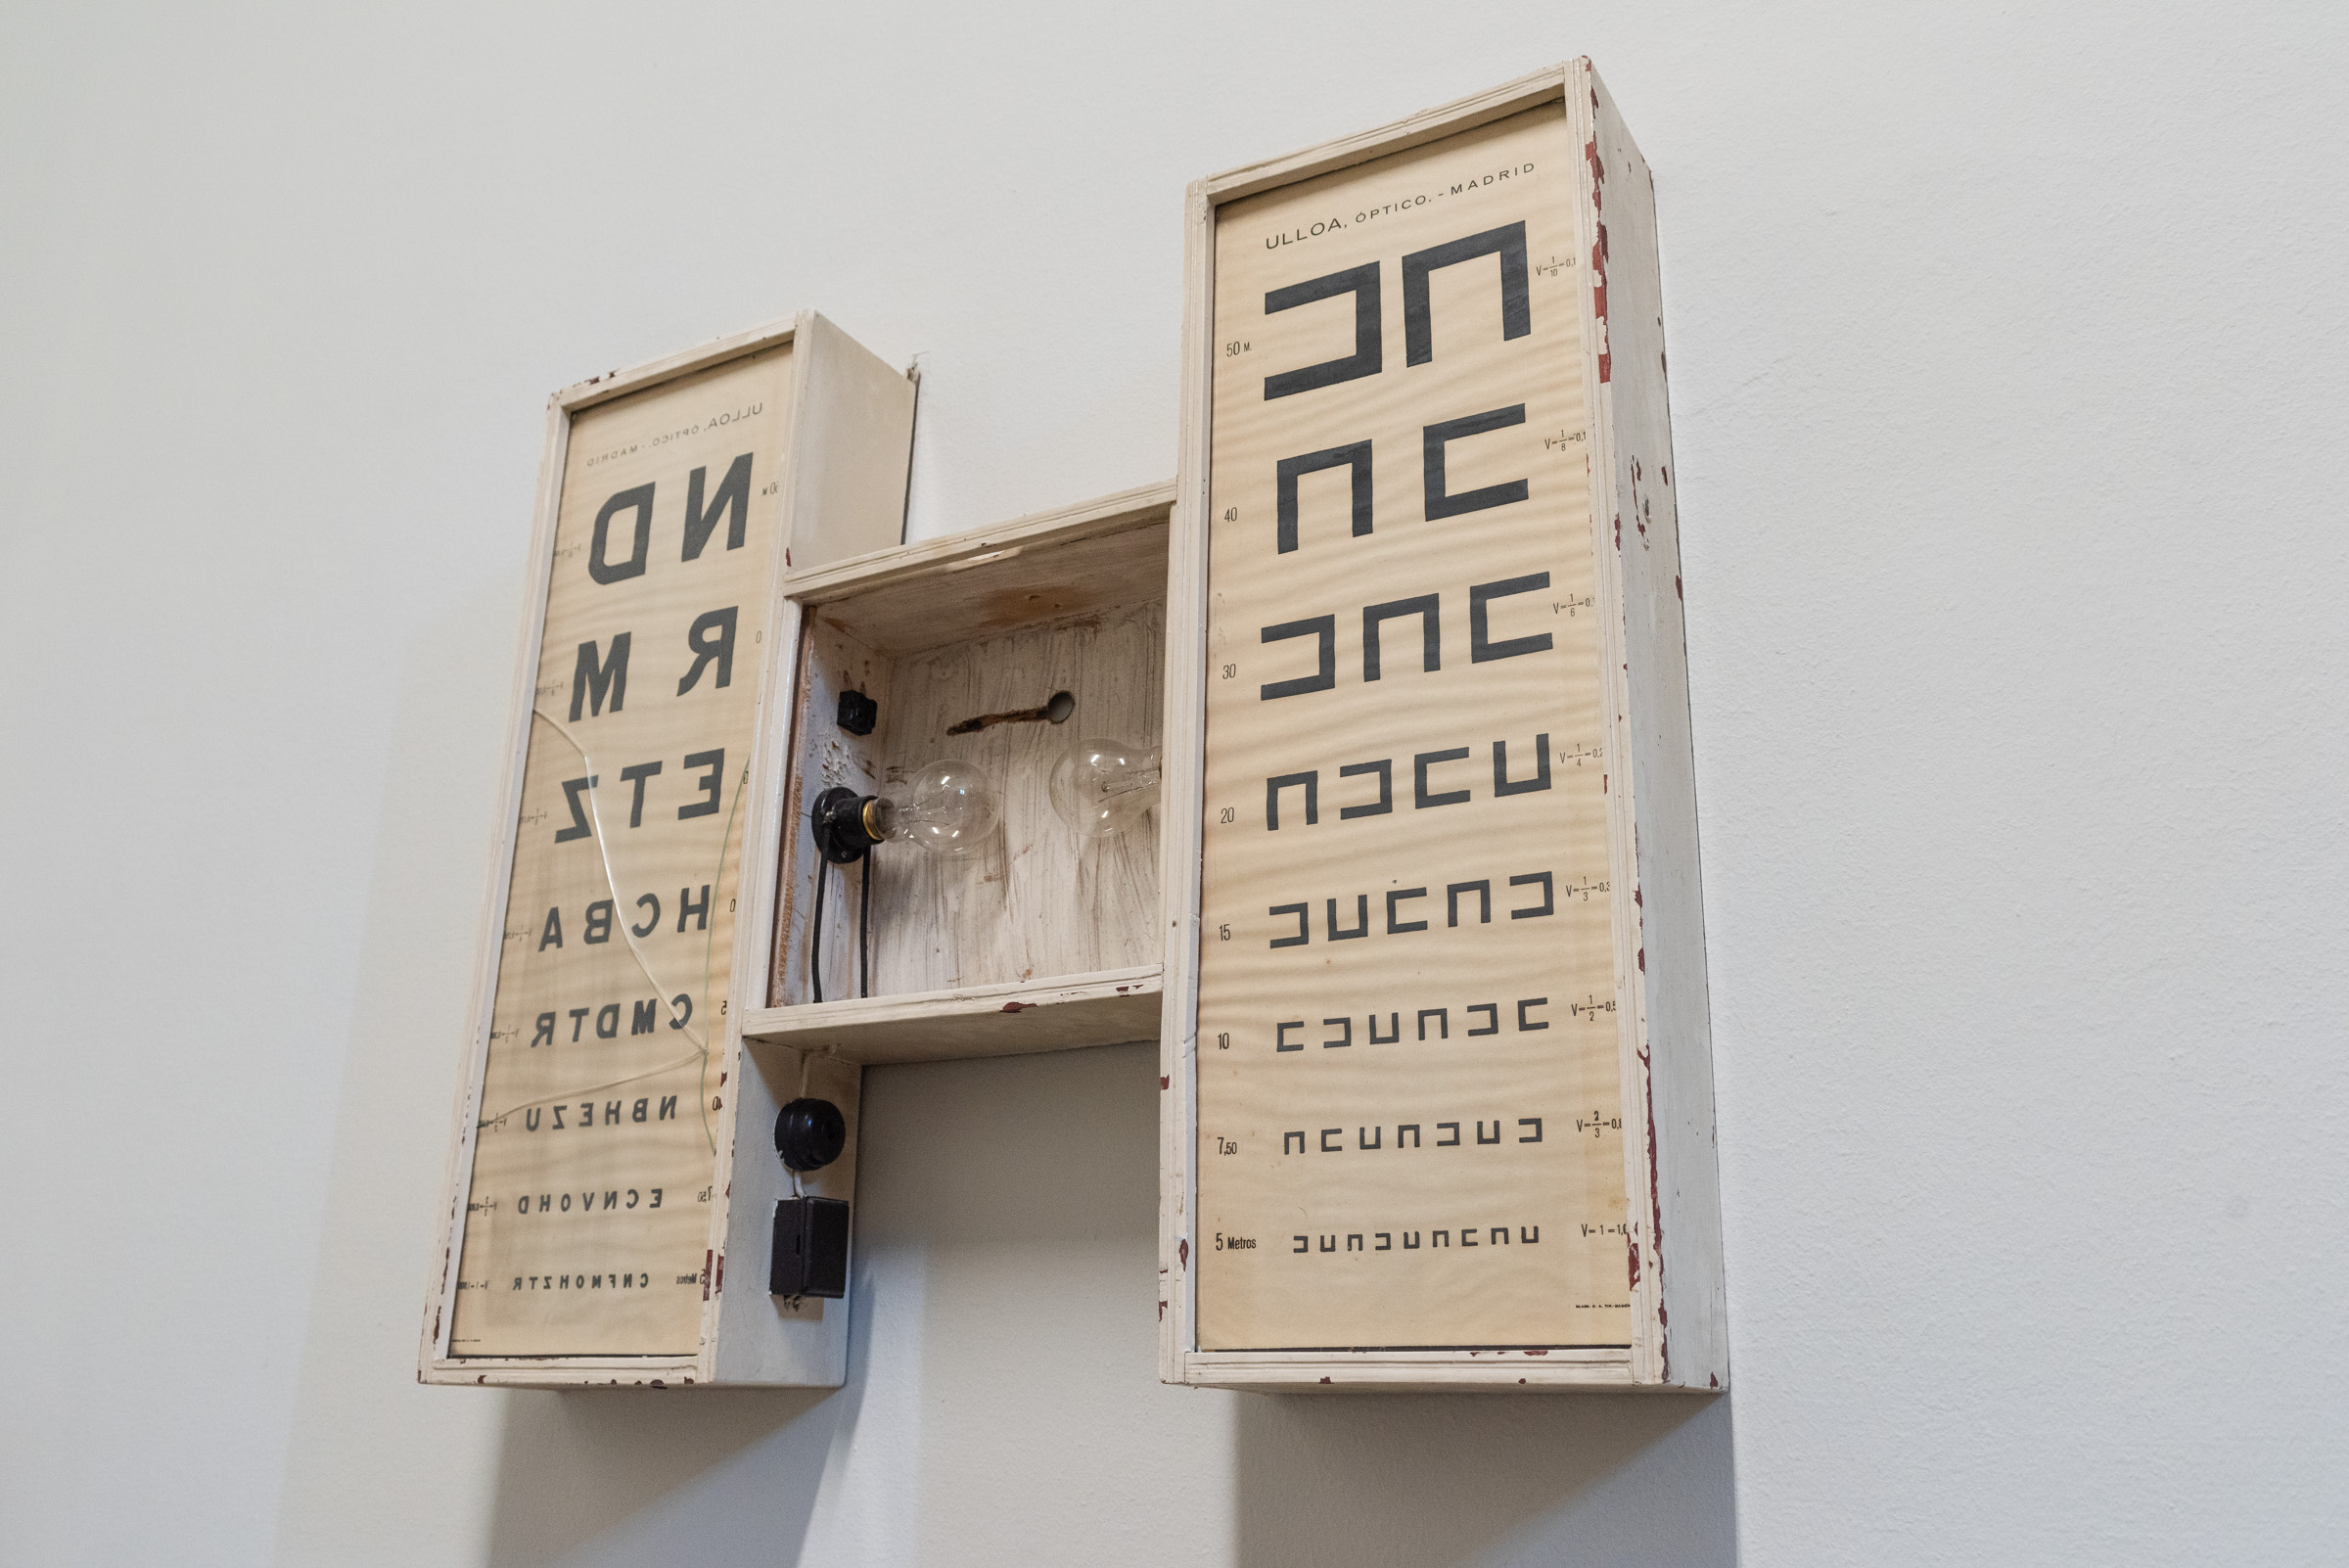 ULLOA, ÓPTICO. - MADRID
N D
R M
E T Z
H C B A
C M D T R
N B H E Z U
7,50 E C N V O H D
5 Metros
ULLOA, ÓPTICO. - MADRID
50 M. V=1/10=0,1
40 V=1/8=0,1
30 V=1/6=0,
20 V=1/4=0,2
15 V=1/3=0,3
10 V=1/2=0,5
7,50 V=2/3=0,6
5 Metros V=1=1,0